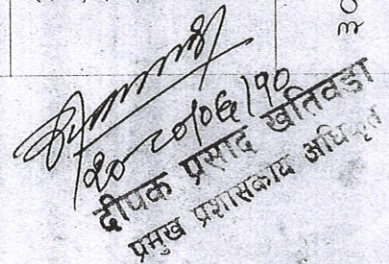 २०८०/०६/१०
दीपक प्रसाद खतिवडा
प्रमुख प्रशासकीय अधिकृत